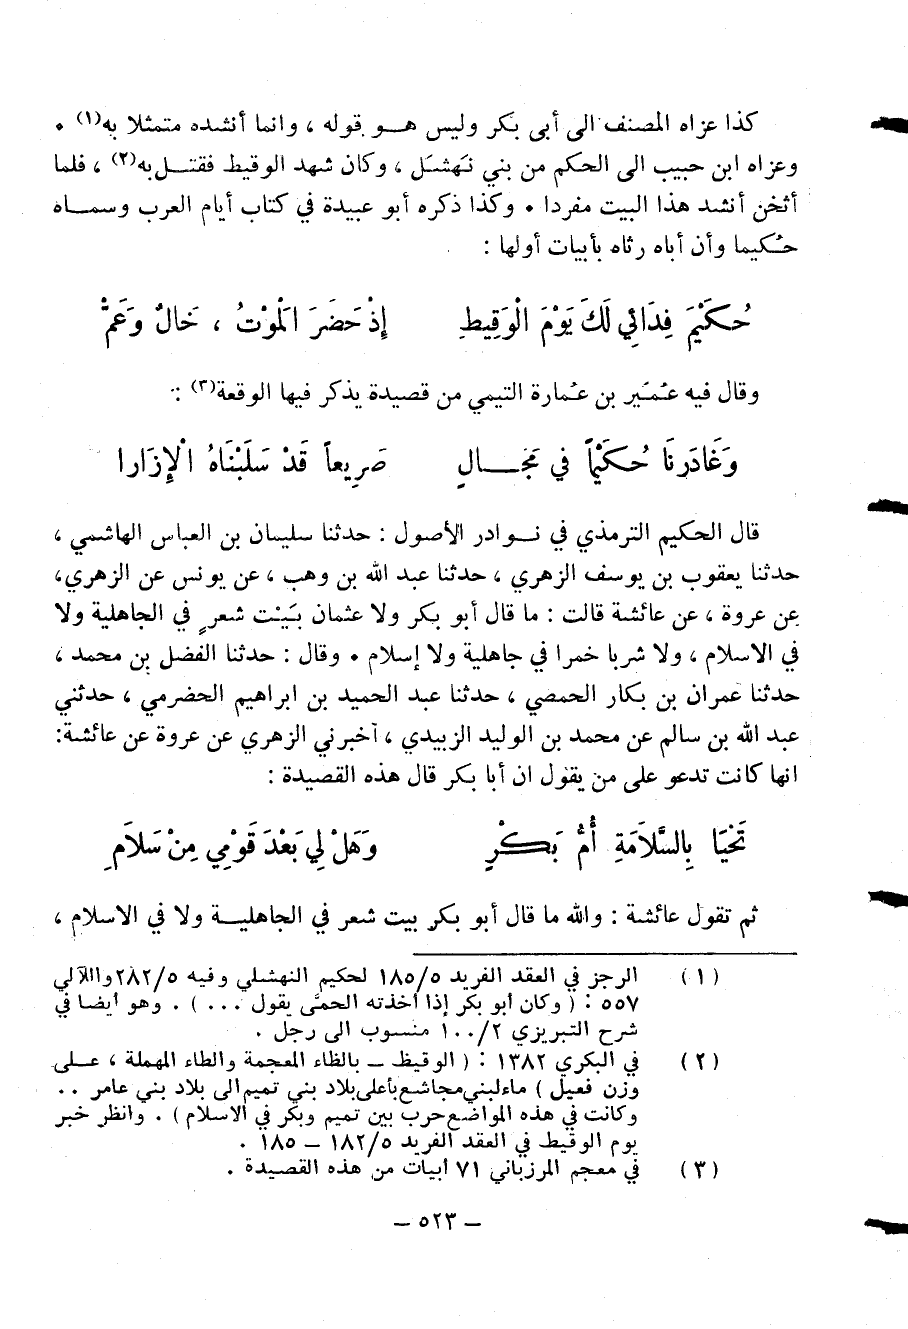 كذا عزاه المصنف الى أبى بكر وليس هـو قوله ، وانما أنشده متمثلا به(١) •
وعزاه ابن حبيب الى الحكم من بني نَهْشَل ، وكان شهد الوقيط فقتـل به(٢) ، فلما
أثخن أنشد هذا البيت مفردا • وكذا ذكره أبو عبيدة في كتاب أيام العرب وسمـاه
حُكيما وأن أباه رثاه بأبيات أولها :
حُكَيْمَ فِدَائِي لَكَ يَوْمَ الْوَقِيطِ إِذْ حَضَرَ الْمَوْتُ ، خَالٌ وَعَمّْ
وقال فيه عُمَير بن عُمارة التيمي من قصيدة يذكر فيها الوقعة(٣) :
وَغَادَرنَا حُكَيْماً في مَجَـالٍ صَرِيعاً قَدْ سَلَبْنَاهُ الْإِزَارا
قال الحكيم الترمذي في نـوادر الأصول : حدثنا سليمان بن العباس الهاشمي ،
حدثنا يعقوب بن يوسف الزهري ، حدثنا عبد الله بن وهب ، عن يونس عن الزهري،
عن عروة ، عن عائشة قالت : ما قال أبو بكر ولا عثمان بَيْت شعرٍ في الجاهلية ولا
في الاسلام ، ولا شربا خمرا في جاهلية ولا إسلام • وقال : حدثنا الفضل بن محمد ،
حدثنا عمران بن بكار الحمصي ، حدثنا عبد الحميد بن ابراهيم الحضرمي ، حدثني
عبد الله بن سالم عن محمد بن الوليد الزبيدي ، أخبرني الزهري عن عروة عن عائشة:
انها كانت تدعو على من يقول ان أبا بكر قال هذه القصيدة :
تَحْيَا بِالسَّلاَمَةِ أُمُّ بَكْرٍ وَهَلْ لِي بَعْدَ قَوْمِي مِنْ سَلاَمِ
ثم تقول عائشة : والله ما قال أبو بكر بيت شعر في الجاهليـة ولا في الاسلام ،
(١) الرجز في العقد الفريد ١٨٥/٥ لحكيم النهشلي وفيه ٢٨٢/٥ واللآلي
٥٥٧ : ( وكان أبو بكر إذا أخذته الحمَّى يقول ... ) . وهو أيضا في
شرح التبريزي ١٠٠/٢ منسوب الى رجل .
(٢) في البكري ١٣٨٢ : ( الوقيظ ــ بالظاء المعجمة والطاء المهملة ، عـلى
وزن فعيل ) ماء لبني مجاشع بأعلى بلاد بني تميم الى بلاد بني عامر ..
وكانت في هذه المواضع حرب بين تميم وبكر في الاسلام ) . وانظر خبر
يوم الوقيط في العقد الفريد ١٨٢/٥ ــ ١٨٥ .
(٣) في معجم المرزباني ٧١ أبيات من هذه القصيدة .
ــ ٥٢٣ ــ